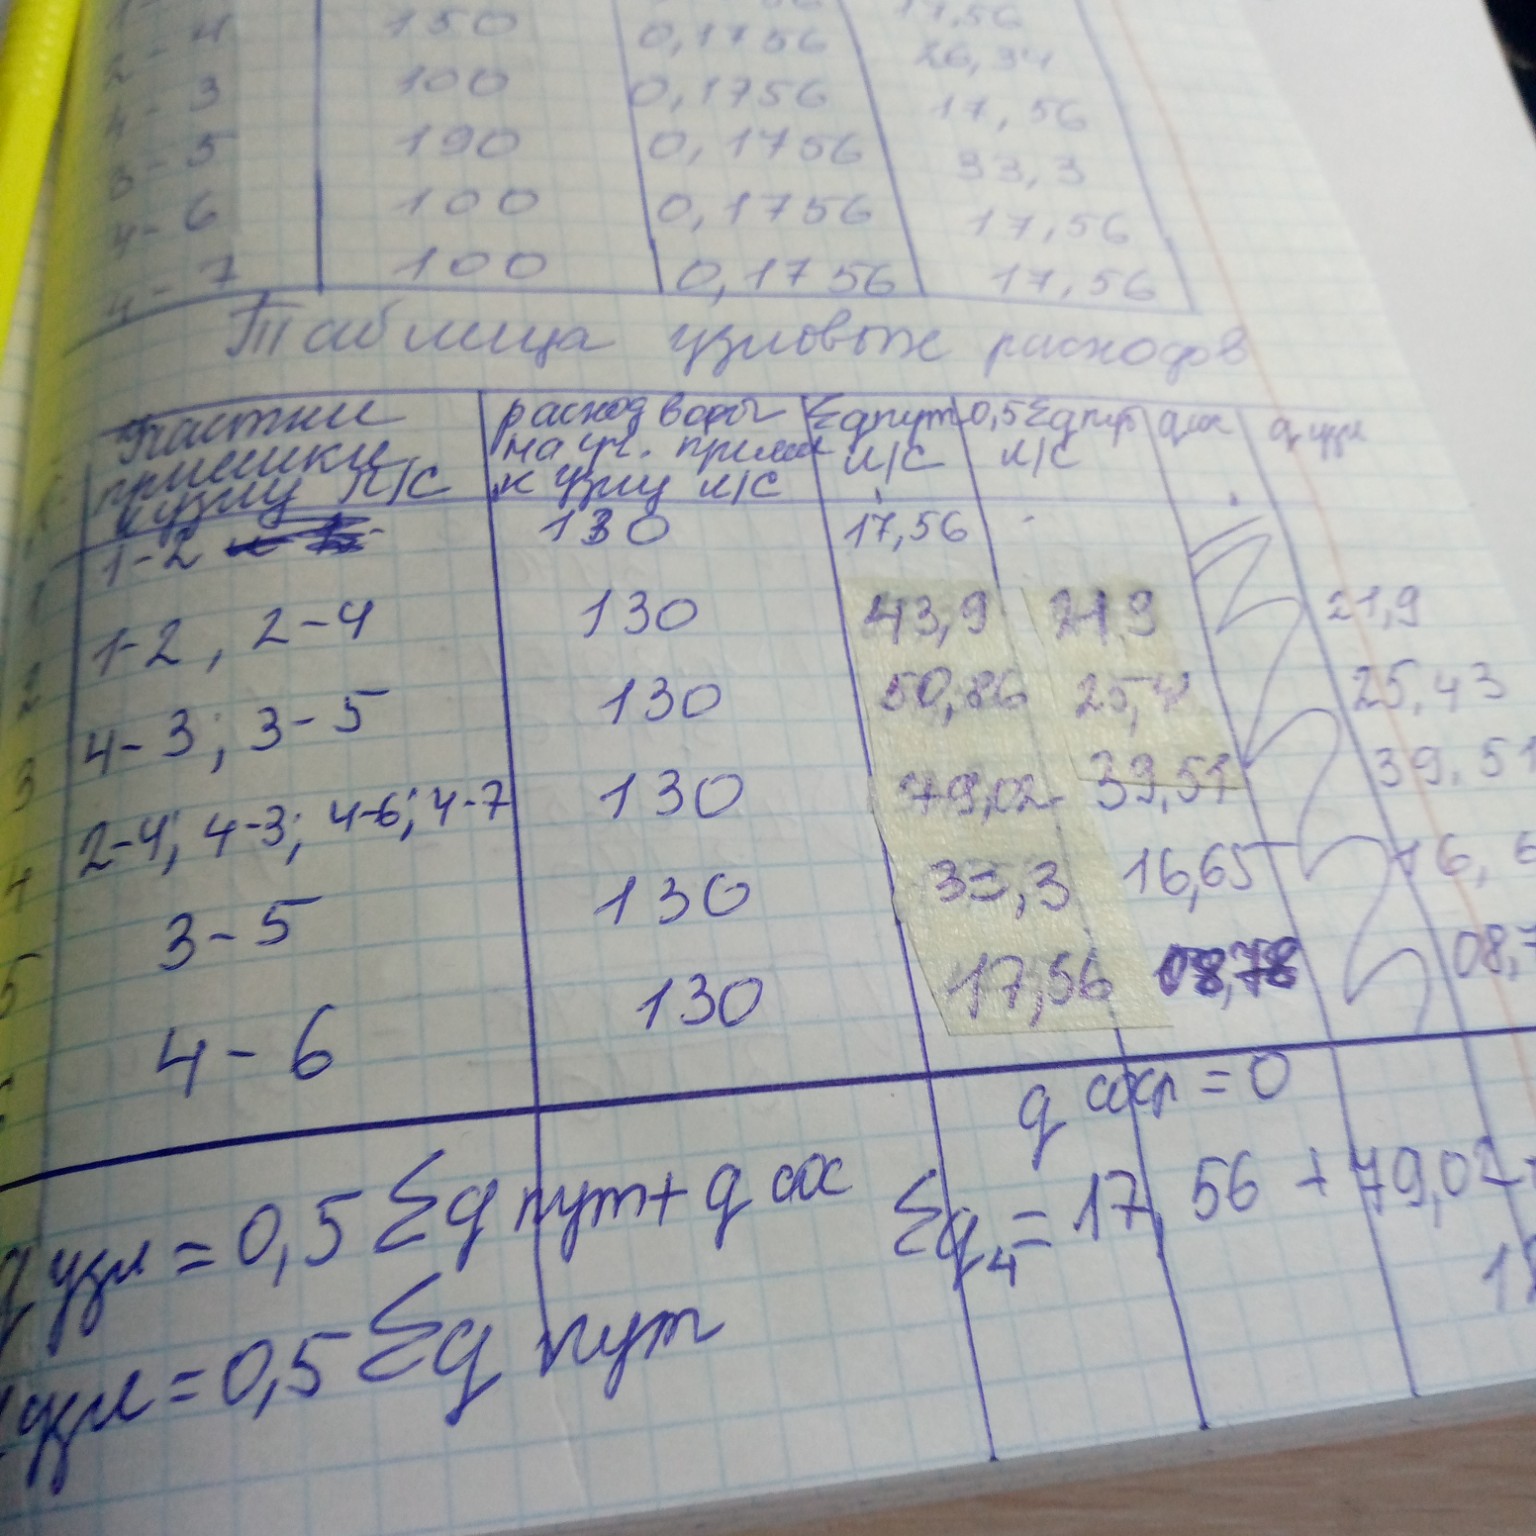 17,56
2-4 150 0,1756 26,34
4-3 100 0,1756 17,56
3-5 190 0,1756 33,3
4-6 100 0,1756 17,56
4-7 100 0,1756 17,56
Таблица узловых расходов
Участки расход воды Σqпут 0,5Σqпут q узл
к узлу л/с к узлу л/с л/с л/с
1-2 130 17,56
1-2, 2-4 130 43,9 21,9 21,9
4-3; 3-5 130 50,86 25,4 25,43
2-4; 4-3; 4-6; 4-7 130 79,02 39,51 39.51
3-5 130 33,3 16,65 16,6
4-6 130 17,56 08,78 08,7
q соср = 0
q узл = 0,5 Σq пут + q сос
Σq4 = 17,56 + 79,02
узл = 0,5 Σq пут